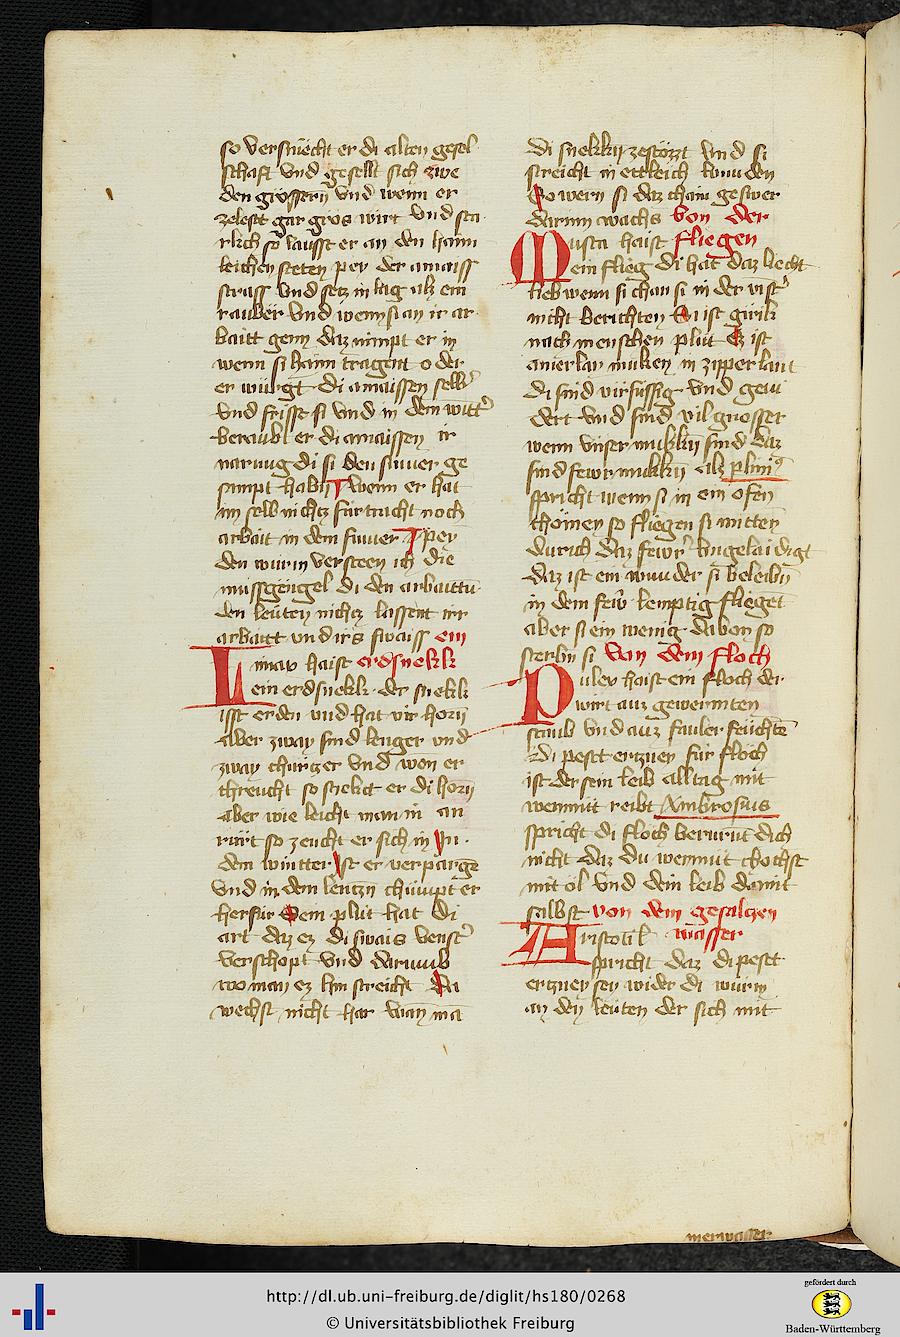 so versmecht er di alten gesel
schaft vnd gesellt sich zwe
den grossern vnd wenn er
zelest gar gros wirt vnd sta
rkch so lausst er an den haim
leichen steten pey der amaiss
strass vnd setz in lag als ein
rauber vnd wenn si an ir ar
baitt genn daz nimpt er in
wenn si haim tragent oder
er würgt di amaissen selb
vnd frisst si vnd in dem wintt
beraubt er di amaissen ir
narung di si den summer ge
sampt habn wenn er hat
im selb nichcz für tracht noch
arbait in dem summer per
den wurm versteen ich die
müssgengel di den arbaittu
den leuten nichcz lassent irr
arbaitt vnd irs swaiss ein
Limax haist erdsnekk
ein erdsnekk der snekk
isst erden vnd hat vir horn
aber zway sind lenger vnd
zway churczer vnd wen er
chreucht so stekct er di horn
aber wie leicht man in an
rürt so zeucht er sich in in
dem wintter ist er verparge
vnd in dem lenczn chumpt er
herfür Sein plüt hat di
art daz ez di swais venst
verschopt vnd darumb
wo man ez hin streicht da
wechst nicht har wan ma
di snekkn zestözzt vnd si
streicht in ettleich kunden
so wern si daz chain geswer
darinn wachs von der
Musca haist fliegen
ein flieg di hat daz liecht
lieb wenn si chan si in der vinst
nicht berichten Si ist girik
nach menschen plüt Ez ist
anierlay mukken in zipper lant
di sind virfüssig vnd gevi
dert vnd sind vil grosser
wenn vnser mukkn sind daz
sind fewr mukkn als plini
spricht wenn si in ein ofen
chömen so fliegen si mitten
durich daz fewr vngelaidigt
daz ist ein wunder si beleibn
in dem fewr lemptig flieget
aber si ein wenig dauon so
sterbn si von dem floch
Pulex haist ein floch der
wirt auz gewermten
staub vnd auz fauler feuchte
di pesst erczney für floch
ist der sein leib alltag mit
wermüt reibt Ambrosius
spricht di floch berurnt dich
nicht daz du wermüt chochst
mit öl vnd dein leib damit
salbst von dem gesalczen
Aristotil wasser
spricht daz di pesst
erczney sey wider di würm
an den leuten der sich mit
merwasser
http://dl.ub.uni-freiburg.de/diglit/hs180/0268
© Universitätsbibliothek Freiburg
gefördert durch
Baden-Württemberg